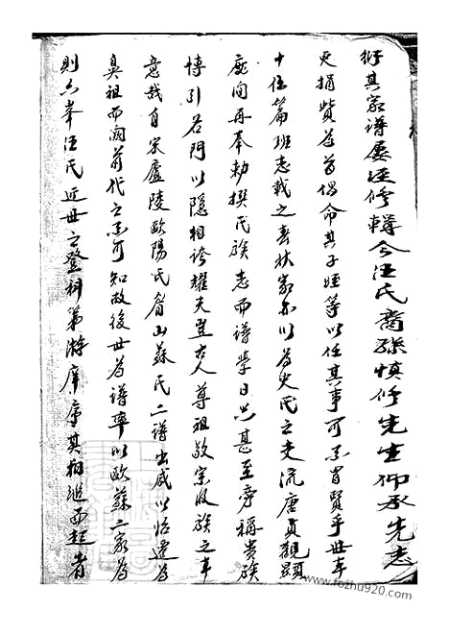 衍其家譜屢經修輯今汪氏裔孫慎修先生仰承先志
更捐貲為首倡命其子姪等以任其事可不謂賢乎世本
十伍篇班志載之春秋家而以為史氏之支流唐貞觀顯
慶間再奉勅撰氏族志而譜學日出甚至旁稱貴族
博引名門以隱相誇耀夫豈古人尊祖敬宗收族之本
意哉自宋廬陵歐陽氏眉山蘇氏二譜出咸以始遷為
鼻祖而闕前代之不可知故後世為譜率以歐蘇二家為
則六峯汪氏近世之登科第游庠序其相繼而起者
www.fozhu920.com